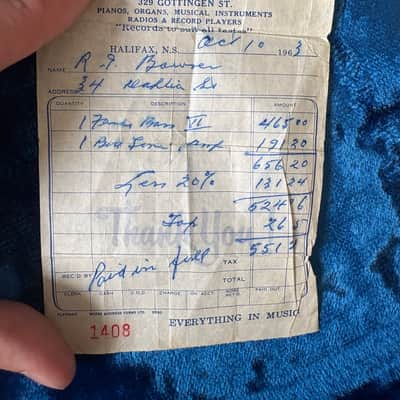 329 GOTTINGEN ST.
PIANOS, ORGANS, MUSICAL INSTRUMENTS
RADIOS & RECORD PLAYERS
"Records to suit all tastes"
HALIFAX, N.S. Oct 10 1963
NAME R. J. Bowser
ADDRESS 34 Dahlia St
QUANTITY DESCRIPTION AMOUNT
1 Fender Bass VI 465 00
1 Bell Tone amp 191 20
656 20
Less 20% 131 24
524 96
Tax 26 5
Thank You
551 2
REC'D BY Paid in full TAX
TOTAL
CLERK CASH C.O.D. CHARGE ON ACCT. MDSE. RETD. PAID OUT
1408 EVERYTHING IN MUSIC